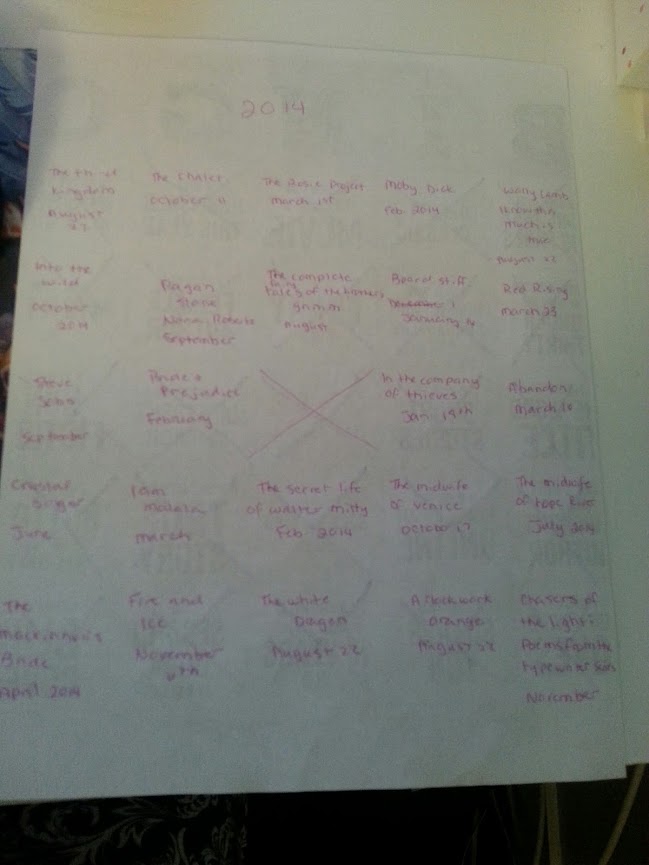 2014
The third
Kingdom
August
27
The Chalet
October 11
The Rosie Project
march 1st
Moby Dick
Feb. 2014
Wally Lamb
I know this
much is
true
August 22
Into the
wild
October
2014
Pagan
Stone
Nora Roberts
September
The complete
fairy
tales of the brothers
grimm
August
Board stiff
1
January 4
Red Rising
march 23
Steve
Jobs
September
Pride +
Prejudice
February
In the company
of thieves
Jan 19th
Abandon
march 10
Crystal
Singer
June
I am
malala
march
The secret life
of walter mitty
Feb 2014
The midwife
of venice
October 17
The midwife
of hope River
July 2014
The
mackinnon's
Bride
April 2014
Fire and
Ice
November
The white
Dragon
August 22
A clockwork
orange
August 22
Chasers of
the light:
Poems from the
typewriter series
November